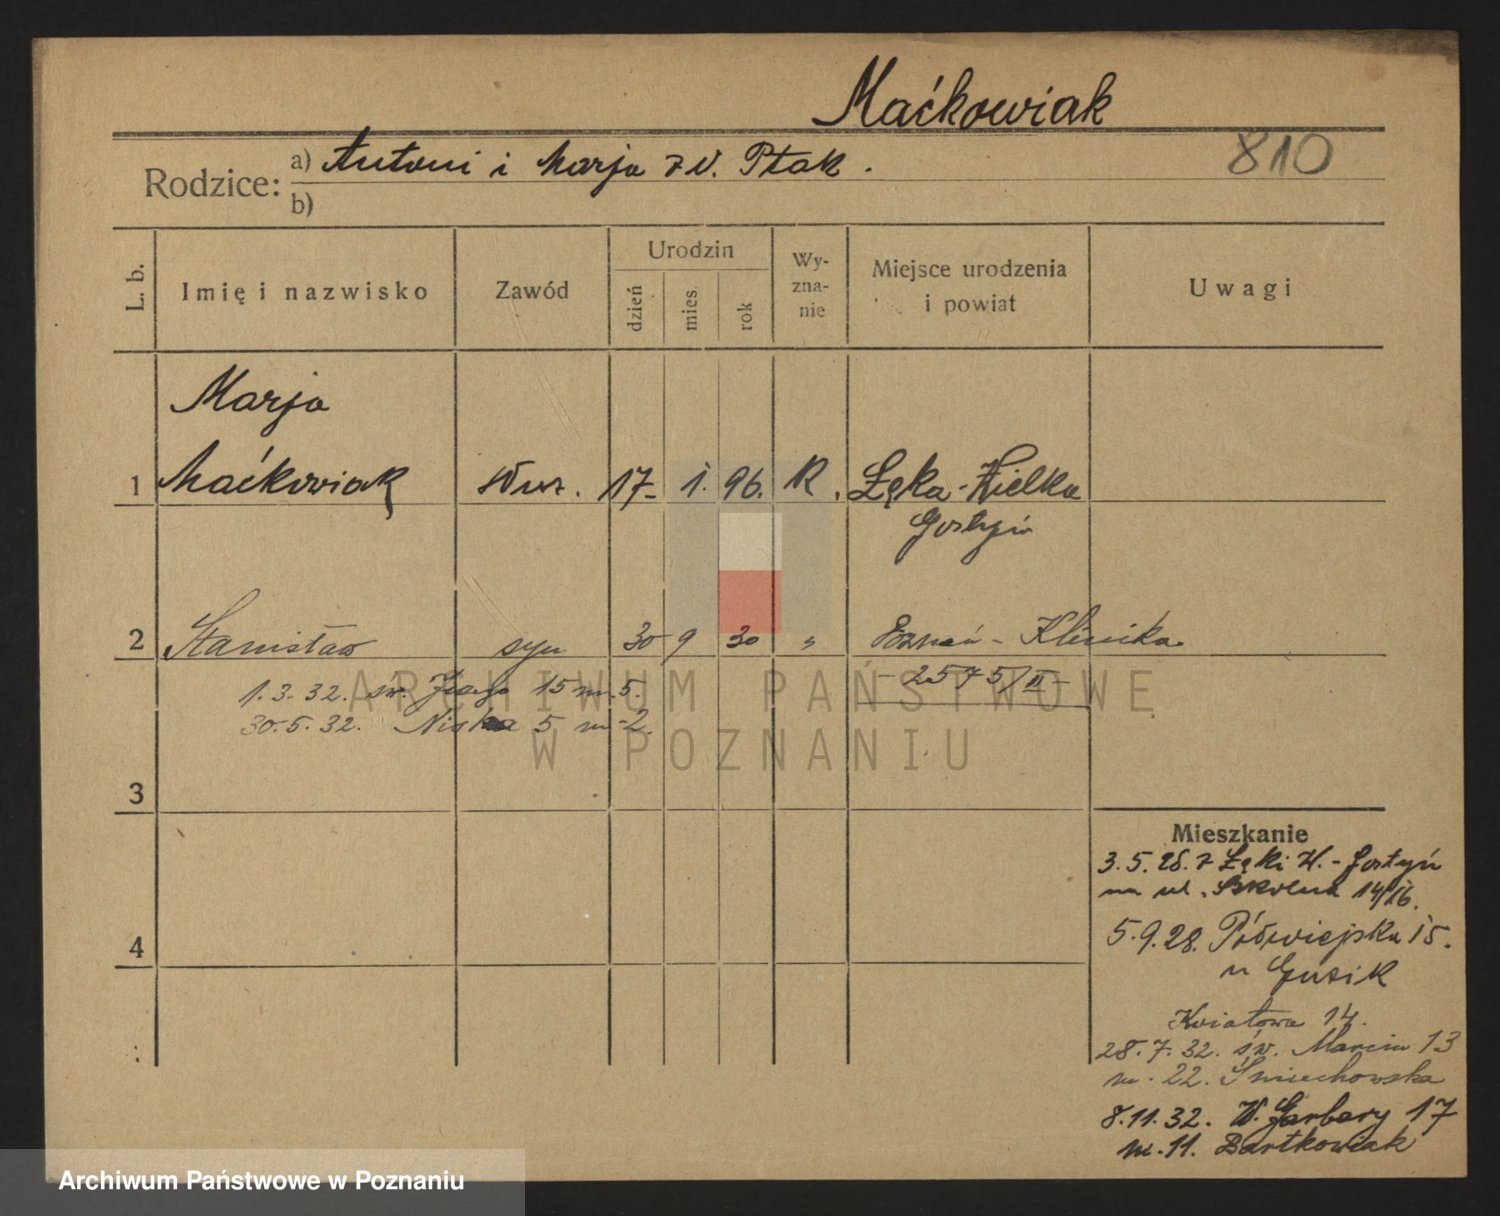 Maćkowiak
810
Rodzice: a) Antoni i Marja z d. Ptak.
b)
L. b.
Imię i nazwisko
Zawód
Urodzin
dzień
mies.
rok
Wy-
zna-
nie
Miejsce urodzenia
i powiat
Uwagi
Marja
1 Maćkowiak 17 1. 96. R. Łęka-Wielka
Gostyń
2 Stanisław syn 30 9 30 " Poznań - Klinika
- 2575/II -
1.3.32. św. 15 m. 5.
30.5.32. Niska 5 m. 2.
3
4
Mieszkanie
3.5.28. z Łęki W.- Gostyń
na ul. Szkolna 14/16.
5.9.28. Półwiejska 15.
u Guzik
Kwiatowa 14.
28.7.32. św. Marcin 13
m. 22. Śniechowska
8.11.32. W. Garbary 17
m. 11. Bartkowiak
ARCHIWUM PAŃSTWOWE
W POZNANIU
Archiwum Państwowe w Poznaniu